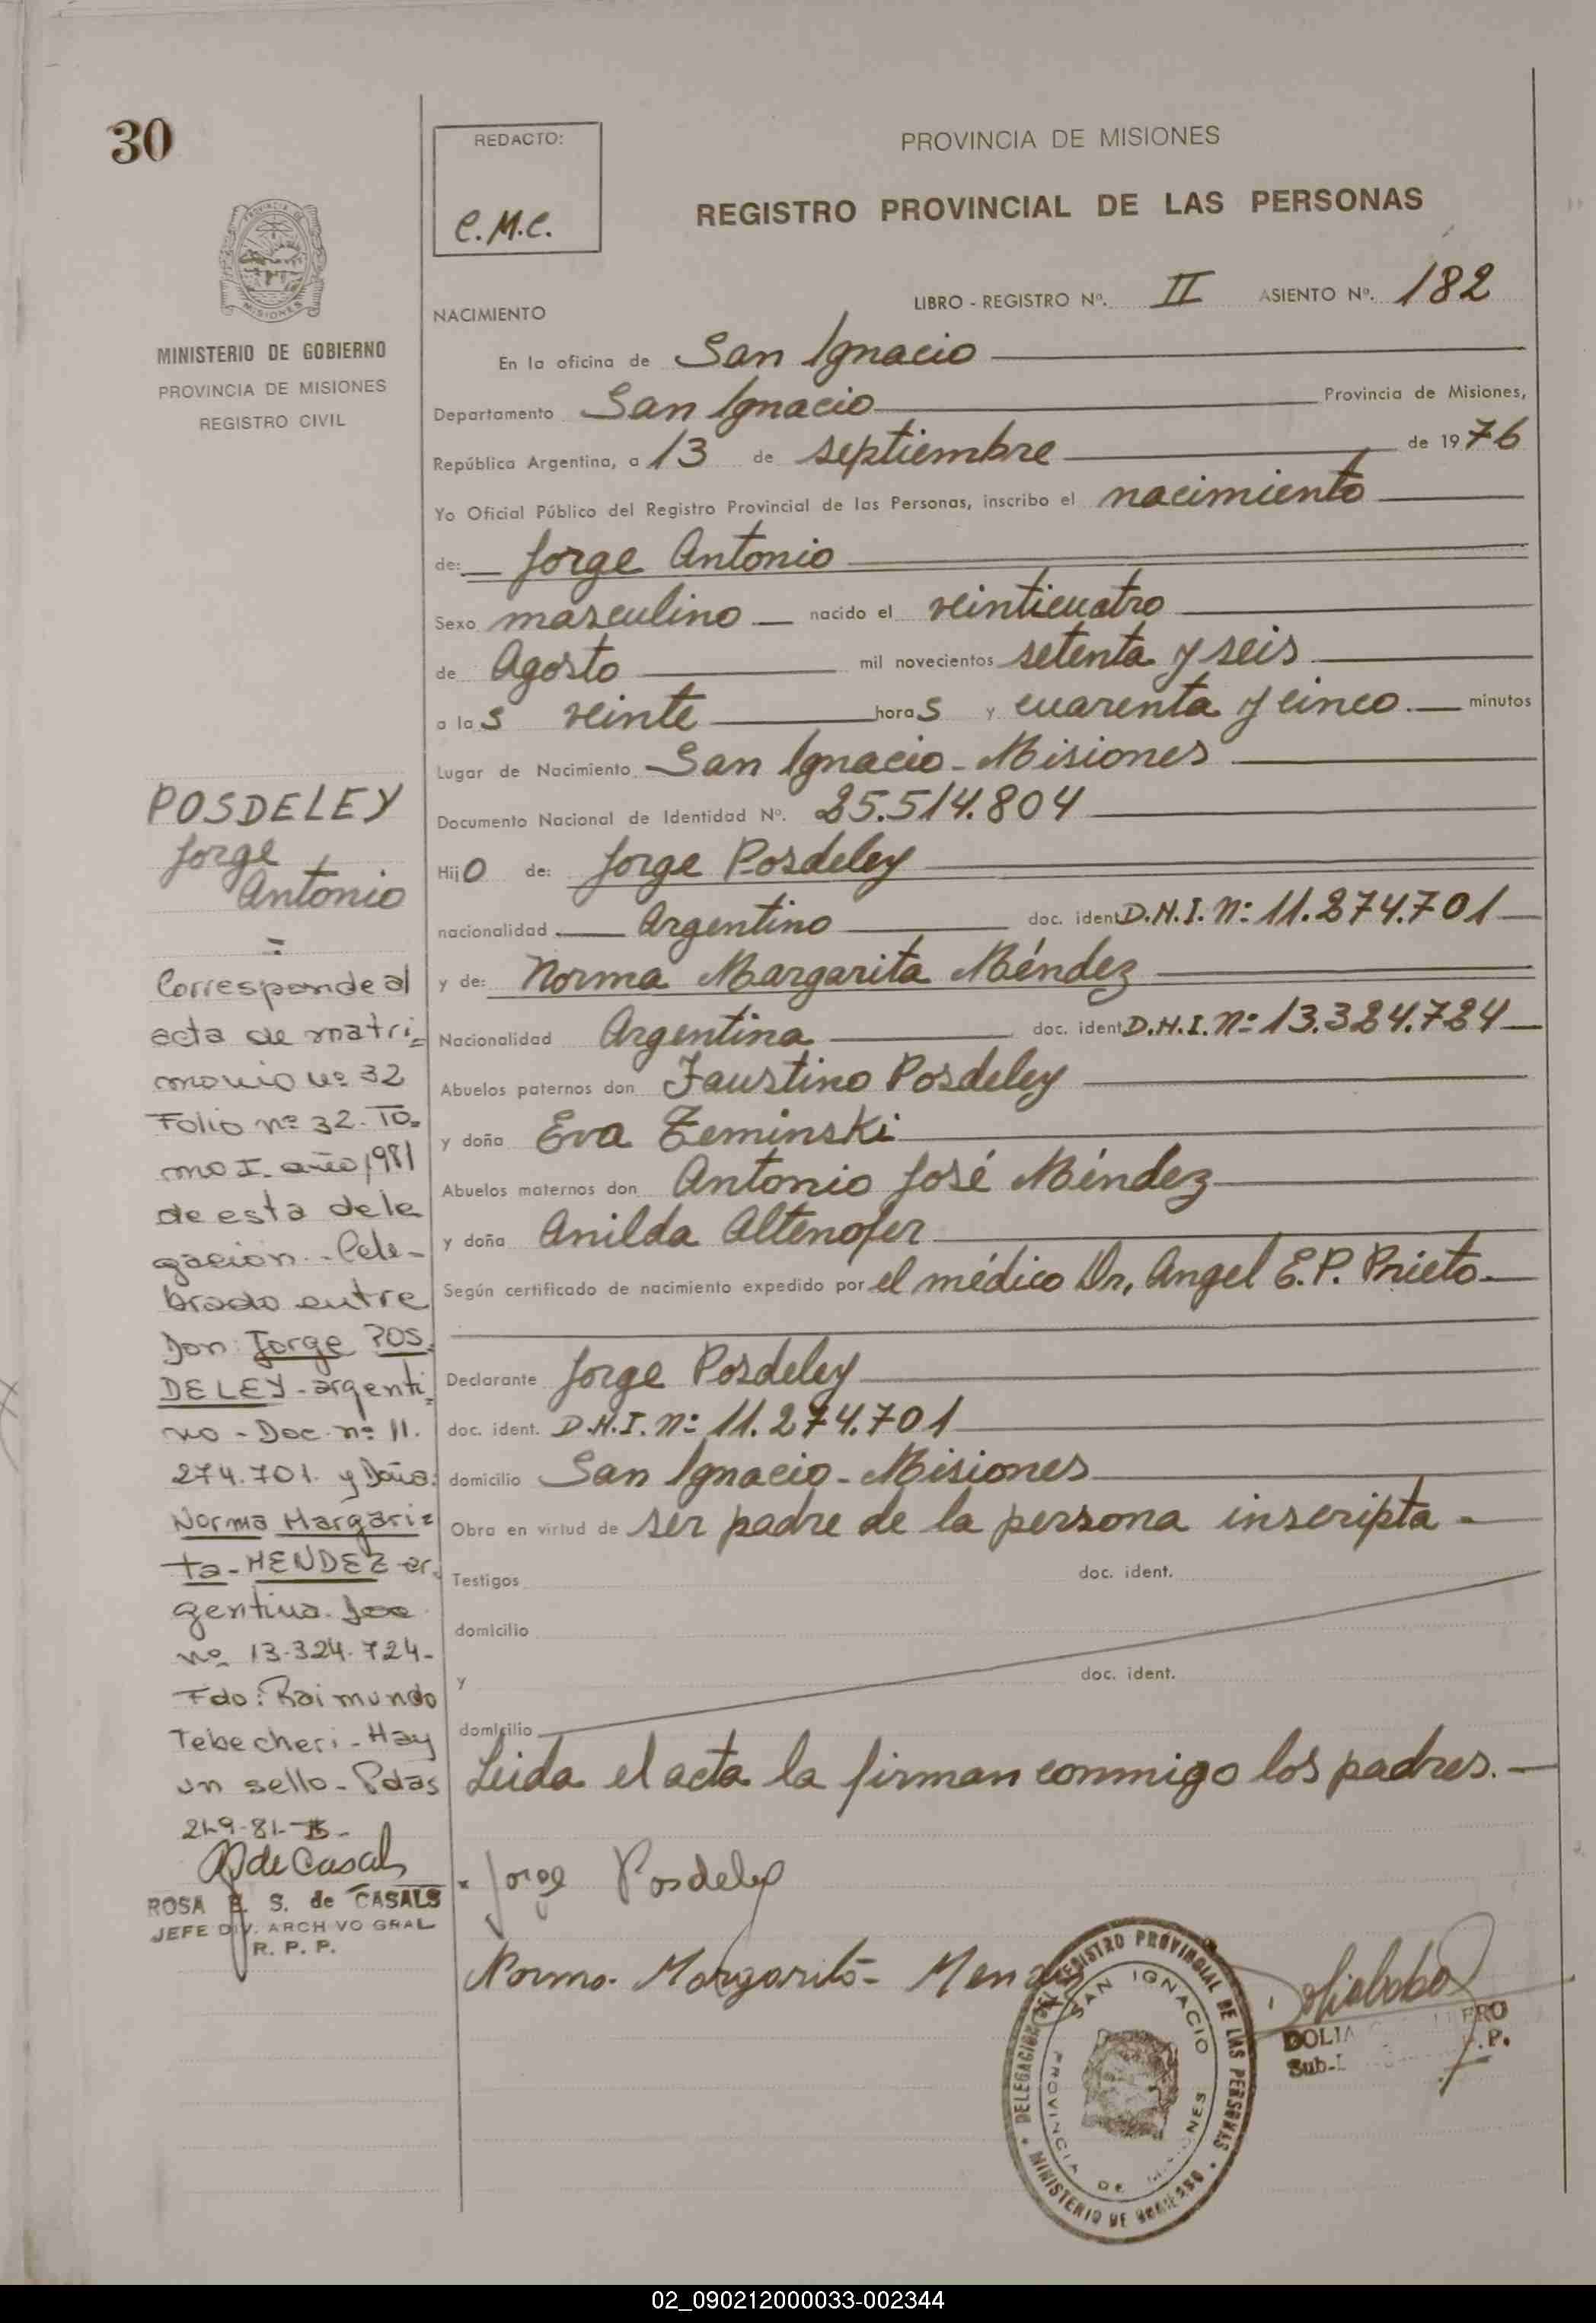 30
REDACTO:
C.M.C.
PROVINCIA DE MISIONES
REGISTRO PROVINCIAL DE LAS PERSONAS
LIBRO - REGISTRO Nº. II ASIENTO Nº. 182
PROVINCIA DE
MISIONES
MINISTERIO DE GOBIERNO
PROVINCIA DE MISIONES
REGISTRO CIVIL
NACIMIENTO
En la oficina de San Ignacio
Departamento San Ignacio Provincia de Misiones,
República Argentina, a 13 de septiembre de 1976
Yo Oficial Público del Registro Provincial de las Personas, inscribo el nacimiento
de: Jorge Antonio
Sexo masculino nacido el veinticuatro
de Agosto mil novecientos setenta y seis
a las veinte horas y cuarenta y cinco minutos
Lugar de Nacimiento San Ignacio - Misiones
Documento Nacional de Identidad Nº. 25.514.804
Hijo de: Jorge Posdeley
nacionalidad Argentino doc. ident D.N.I. Nº: 11.274.701
y de: Norma Margarita Méndez
Nacionalidad Argentina doc. ident D.N.I. Nº: 13.324.724
Abuelos paternos don Faustino Posdeley
y doña Eva Zeminski
Abuelos maternos don Antonio José Méndez
y doña Anilda Altenofer
Según certificado de nacimiento expedido por el médico Dr. Angel E.P. Prieto.
Declarante Jorge Posdeley
doc. ident. D.N.I. Nº: 11.274.701
domicilio San Ignacio - Misiones
Obra en virtud de ser padre de la persona inscripta -
Testigos doc. ident.
domicilio
y doc. ident.
domicilio
Leida el acta la firman conmigo los padres. -
Jorge Posdeley
Norma Margarita Mendez
POSDELEY
Jorge
Antonio
=
Corresponde al
acta de matri=
monio nº 32
Folio nº 32. To=
mo I. año 1981
de esta dele
gación. - Cele-
brado entre
Don: Jorge POS
DELEY - argenti=
no - Doc. nº 11.
274.701. y Doña:
Norma Margari=
ta - MENDEZ ar.
gentina. Doc
nº 13.324.724-
Fdo: Raimundo
Tebecheri - Hay
un sello - Pdas
21-9-81-
de Casals
ROSA E. S. de CASALS
JEFE DIV. ARCHIVO GRAL
R. P. P.
DELEGACION DEL REGISTRO PROVINCIAL DE LAS PERSONAS
MINISTERIO DE GOBIERNO
SAN IGNACIO
PROVINCIA DE MISIONES
02_090212000033-002344